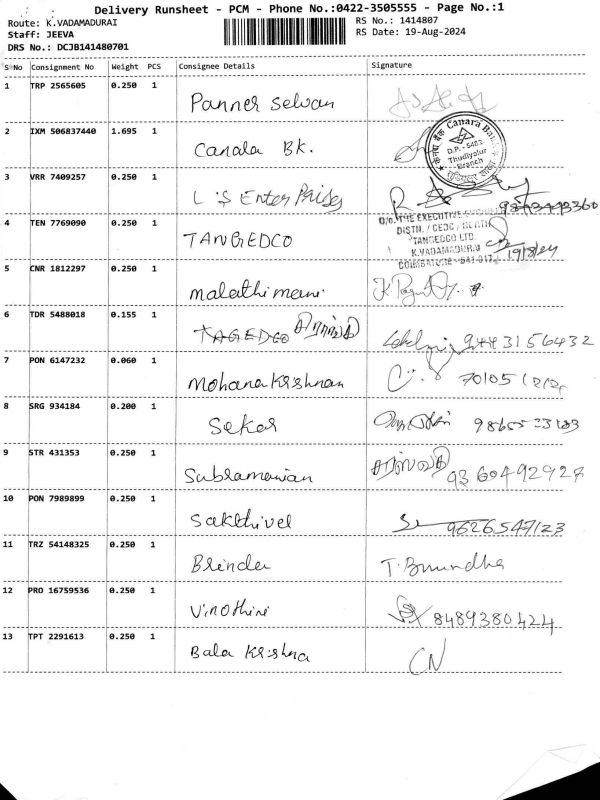 Delivery Runsheet - PCM - Phone No.:0422-3505555 - Page No.:1
Route: K.VADAMADURAI
RS No.: 1414807
Staff: JEEVA
RS Date: 19-Aug-2024
DRS No.: DCJB141480701
SNo Consignment No Weight PCS Consignee Details Signature
1 TRP 2565605 0.250 1 Panner Selvan
2 IXM 506837440 1.695 1 Canala BK.
केनरा बैंक Canara Bank
D.P.- 5403
Thudiyalur
Branch
3 VRR 7409257 0.250 1 L.S EnterPrises
O/o. THE EXECUTIVE ENGINEER
DISTN. / CEDC / NORTH
TANGEDCO LTD.
K.VADAMADURAI
COIMBATORE - 641 017.
19/8/24
4 TEN 7769090 0.250 1 TANGEDCO
5 CNR 1812297 0.250 1 malathi mani
6 TDR 5488018 0.155 1 TAGEDCO 9443156432
7 PON 6147232 0.060 1 Mohana Krishnan
8 SRG 934184 0.200 1 Sekar
9 STR 431353 0.250 1 Subramanian 9360492927
10 PON 7989899 0.250 1 Sakthivel 9626547123
11 TRZ 54148325 0.250 1 Brinda T. Brundha
12 PRO 16759536 0.250 1 Vinothini 8489380424
13 TPT 2291613 0.250 1 Bala Krishna CN